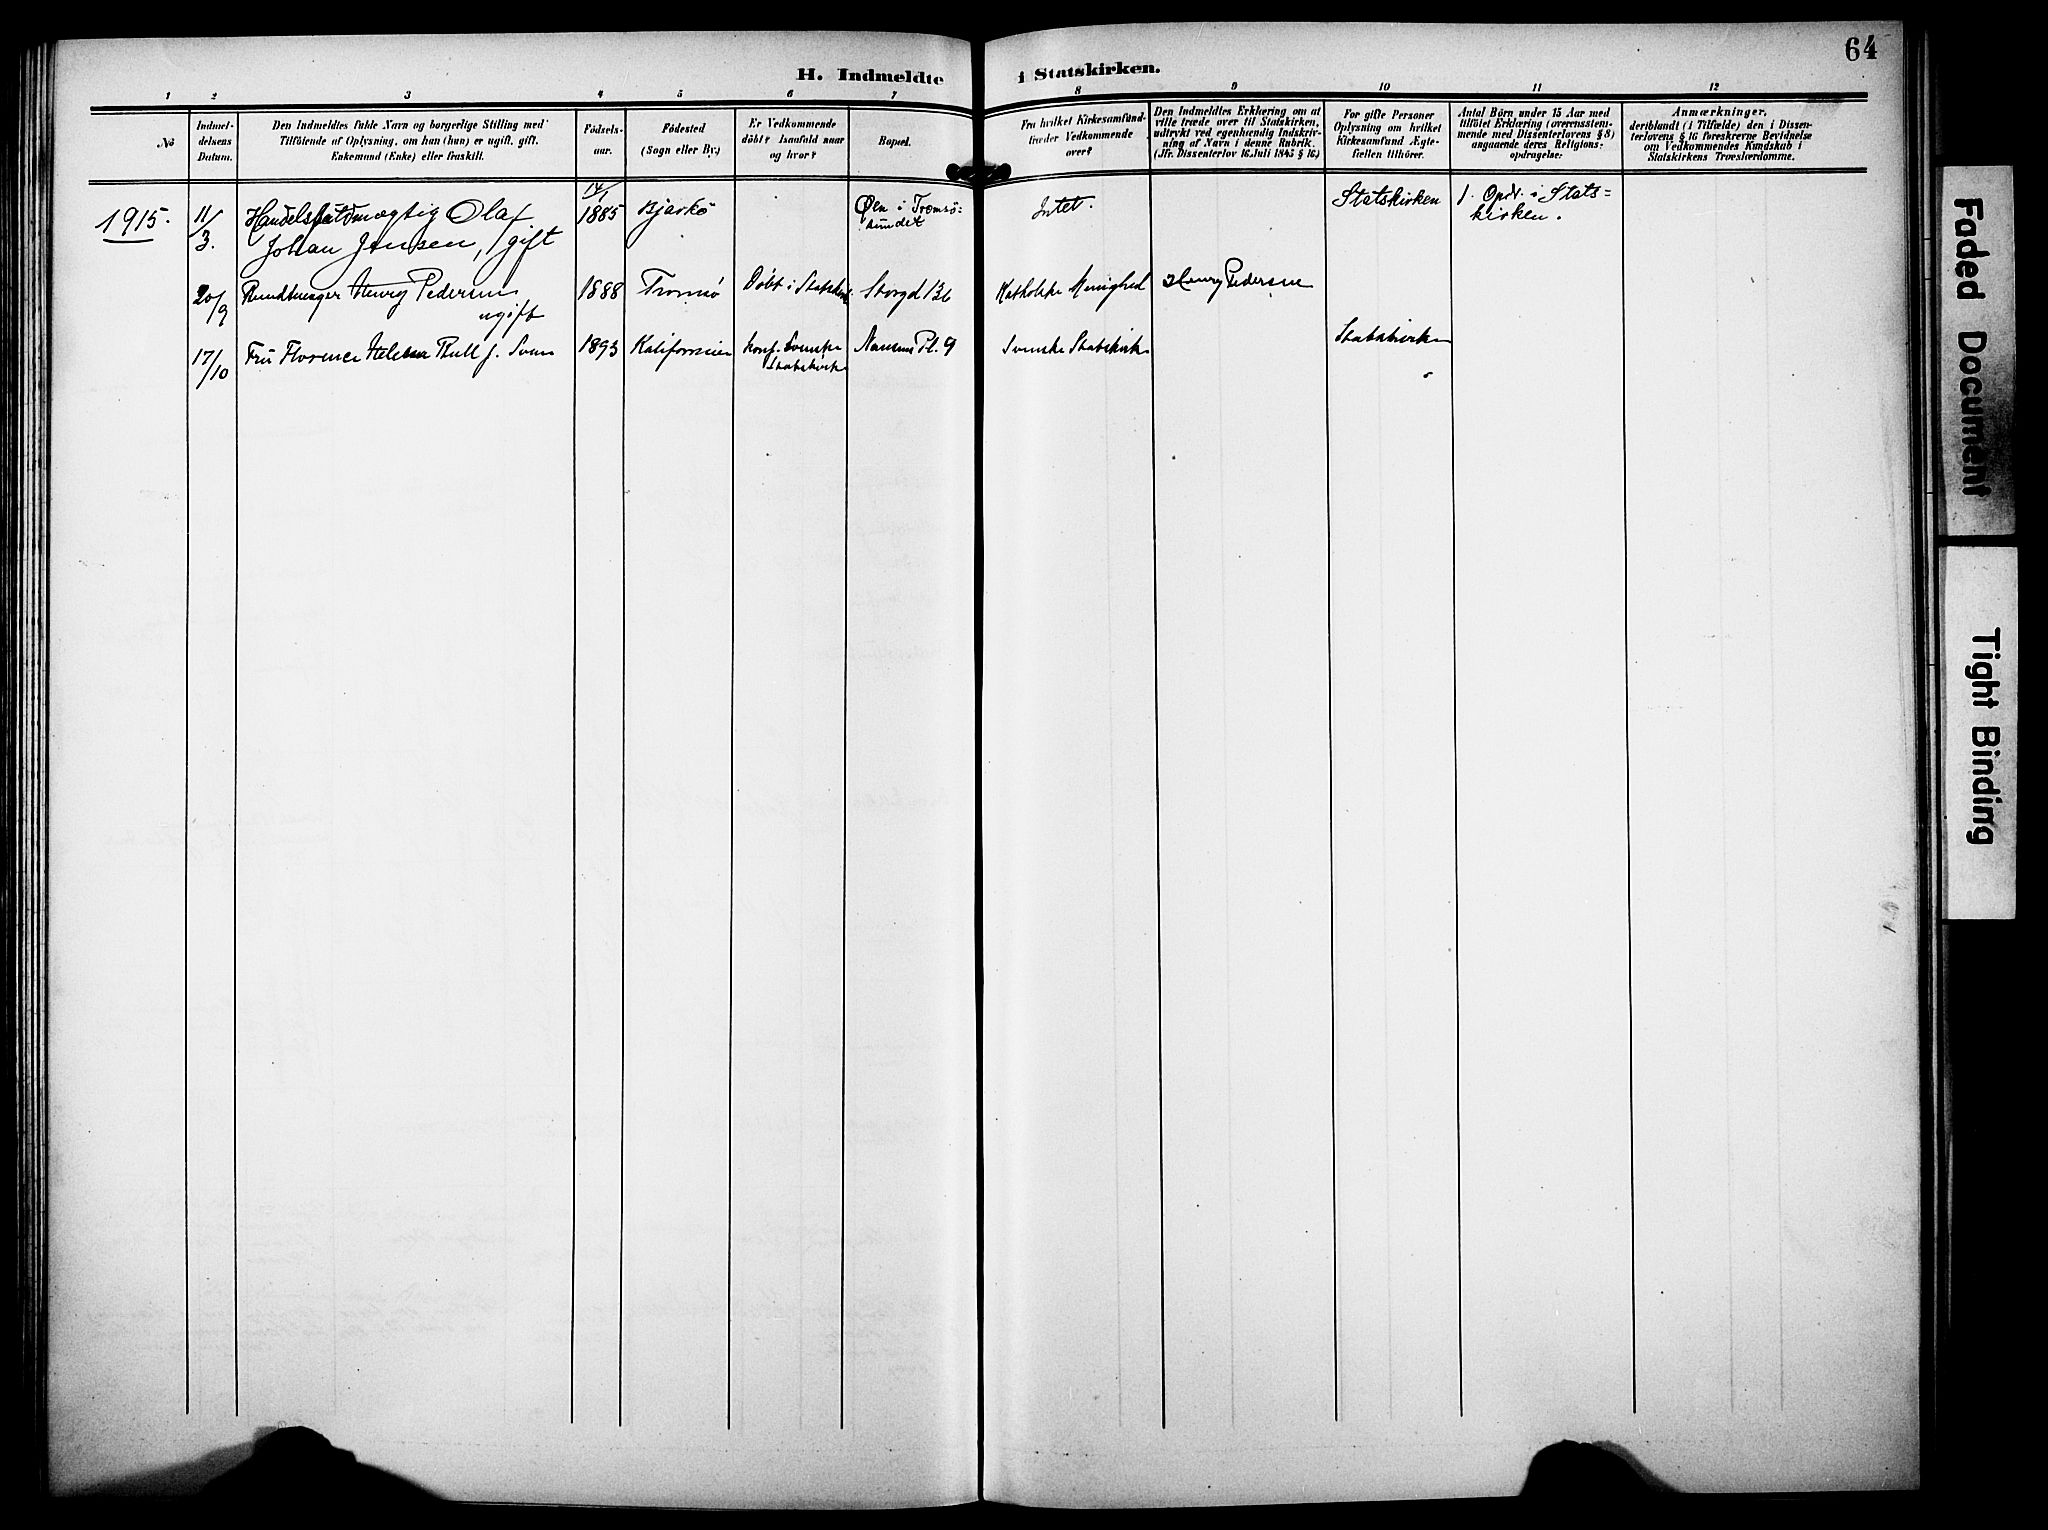 64
H. Indmeldte i Statskirken.
1 2 3 4 5 6 7 8 9 10 11 12
No
Indmel-
delsens
Datum.
Den Indmeldtes fulde Navn og borgerlige Stilling med
Tilföiende af Oplysning, om han (hun) er ugift, gift,
Enkemand (Enke) eller fraskilt.
Födsels-
aar.
Födested
(Sogn eller By.)
Er Vedkommende
döbt? Isaafald naar
og hvor?
Bopæl.
Fra hvilket Kirkesamfund
træder Vedkommende
over?
Den Indmeldtes Erklæring om at
ville træde over til Statskirken,
udtrykt ved egenhændig Indskriv-
ning af Navn i denne Rubrik.
(Jfr. Dissenterlov 16 Juli 1845 § 16.)
For gifte Personer
Oplysning om hvilket
Kirkesamfund Ægte-
fællen tilhörer.
Antal Börn under 15 Aar med
tilföiet Erklæring (overensstem-
mende med Dissenterlovens § 8)
angaaende deres Religions-
opdragelse:
Anmærkninger,
deriblandt (i Tilfælde) den i Dissen-
terlovens § 16 foreskrevne Bevidnelse
om Vedkommendes Kundskab i
Statskirkens Troeslærdomme.
1915.
11/3.
Handelsfuldmægtig Olaf
Johan Jensen, gift
14/1
1885
Bjarkö
Øen i Tromsö-
sundet
Intet.
Statskirken
1. Opdr. i Stats-
kirken.
20/9
Henry Pedersen
ugift
1888
Tromsö
Döbt i Statskirk
Storgd 136
Katholske Menighed
Henry Pedersen
17/10
Fru Florence Helena Bull f. Sven
1893
Kalifornien
konf. Svenske
Statskirke
Nansens Pl. 9
Svenske Statskirke
Statskirke
Faded Document
Tight Binding